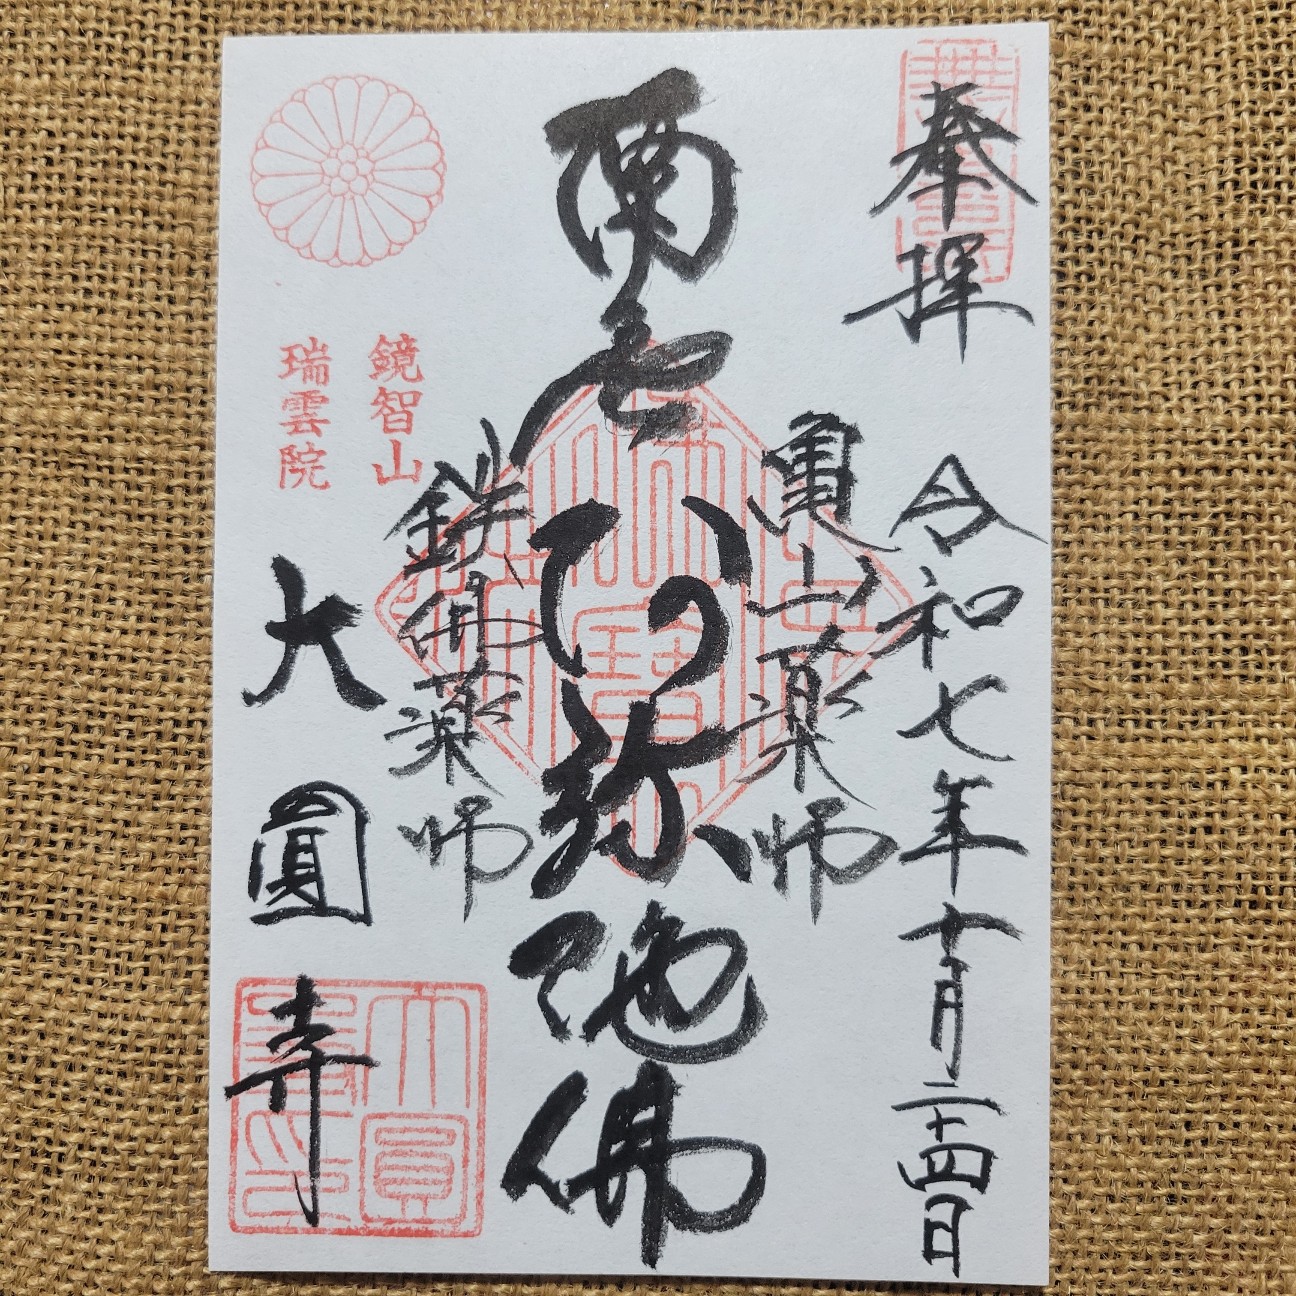 奉拝
令和七年十月二十四日
亀山薬師
南無阿弥陀佛
鉄佛薬師
鏡智山
瑞雲院
大圓寺
大圓
寺印